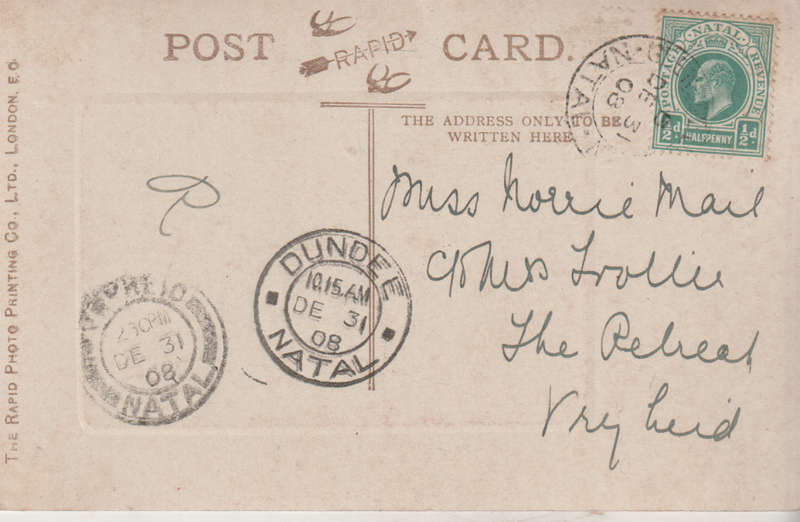 POST CARD.
RAPID
THE ADDRESS ONLY TO BE
WRITTEN HERE
NATAL
DE 31
08
POSTAGE NATAL REVENUE
½d HALFPENNY ½d
Miss Norrie Mail
c/o Mrs Trollie
The Retreat
Vryheid
P
DUNDEE
10.15.AM
DE 31
08
NATAL
VRYHEID
PM
DE 31
08
NATAL
THE RAPID PHOTO PRINTING CO., LTD., LONDON, E.C.